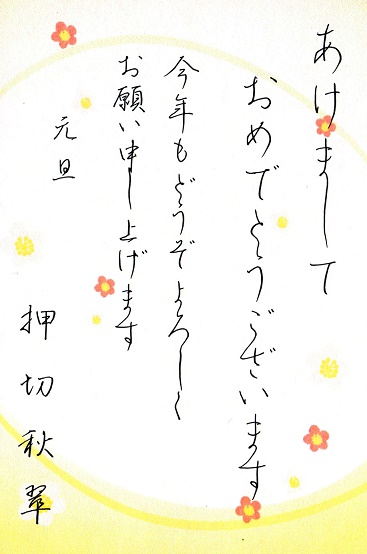 あけまして
おめでとうございます
今年もどうぞよろしく
お願い申し上げます
元旦
押切秋翠